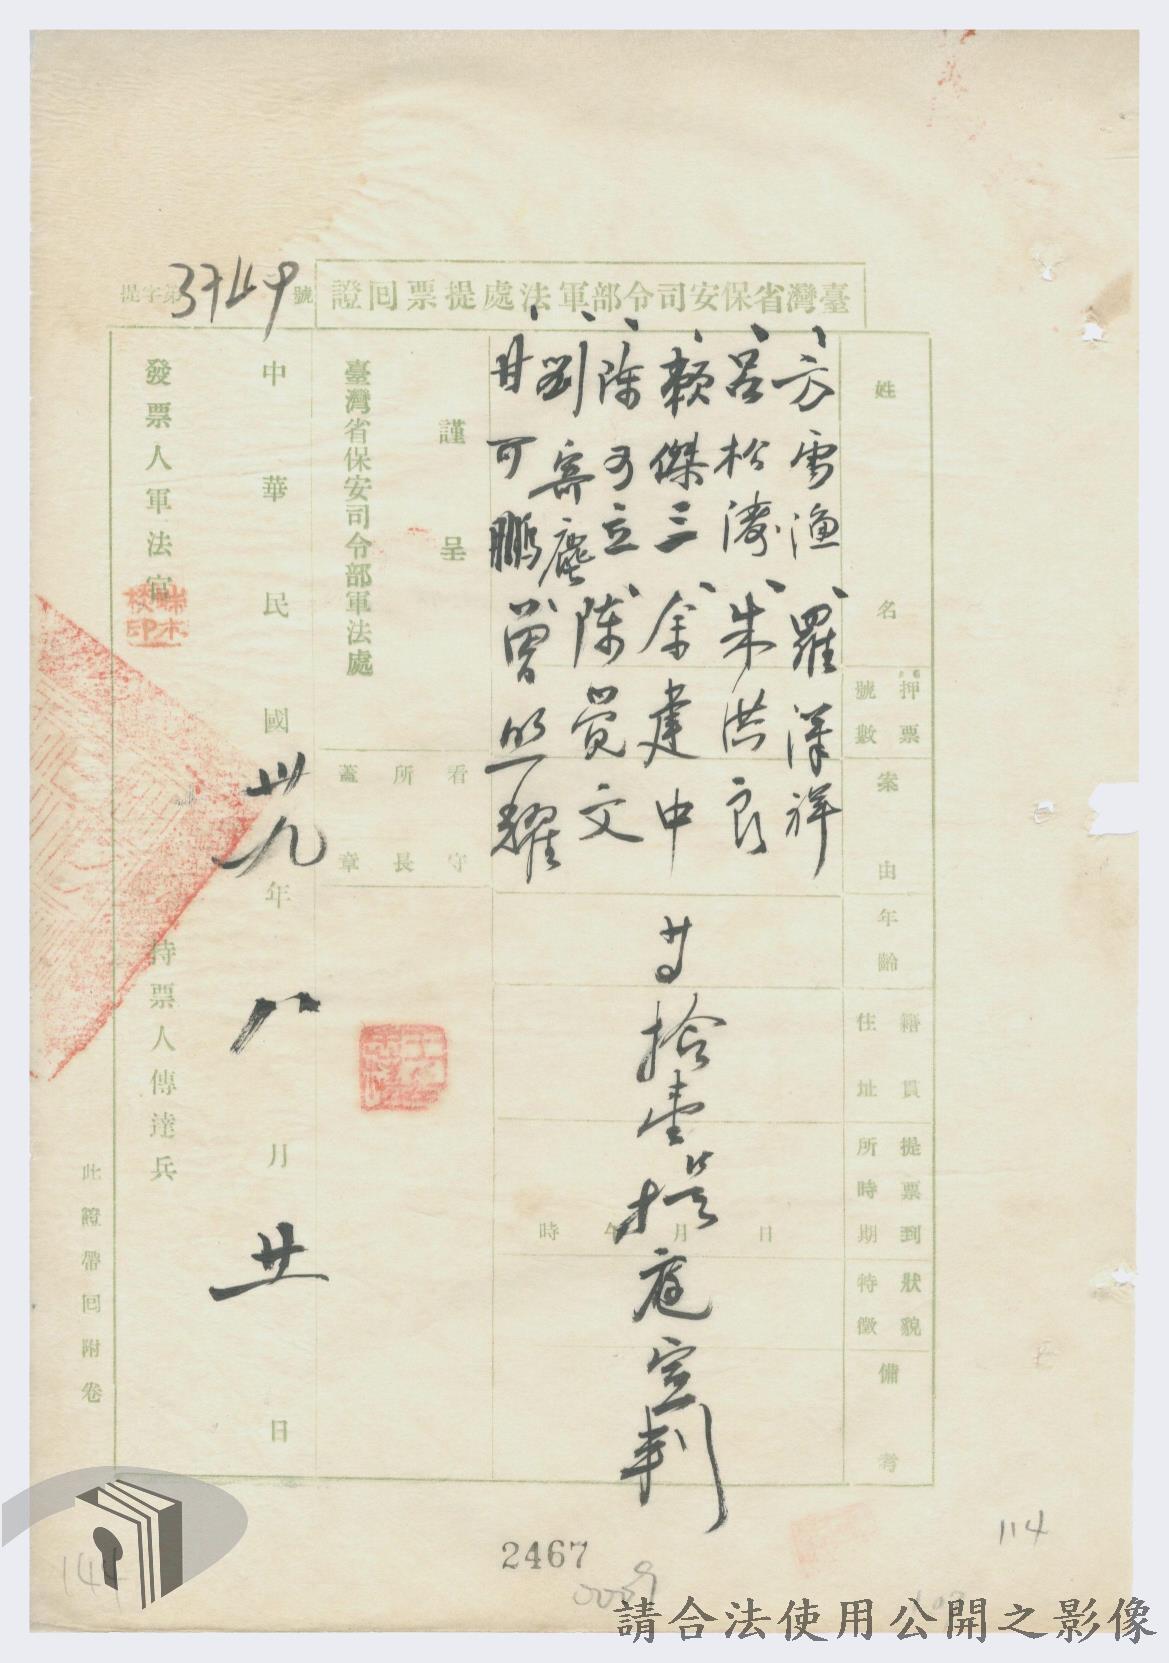 臺灣省保安司令部軍法處提票回證
提字第3749號
姓名
押票號數
案由
年齡
籍貫住址
提票到所時期
狀貌特徵
備考
方雪漁 羅漢祥
呂松濤 朱洪良
賴傑三 余建中
陳可立 陳賞文
劉寄塵
甘可鵬 曾照耀
等拾壹提庭宣判
月日午時
謹呈
臺灣省保安司令部軍法處
看守所長蓋章
中華民國卅九年八月廿一日
發票人軍法官
持票人傳達兵
此證帶回附卷
2467
114
144
請合法使用公開之影像